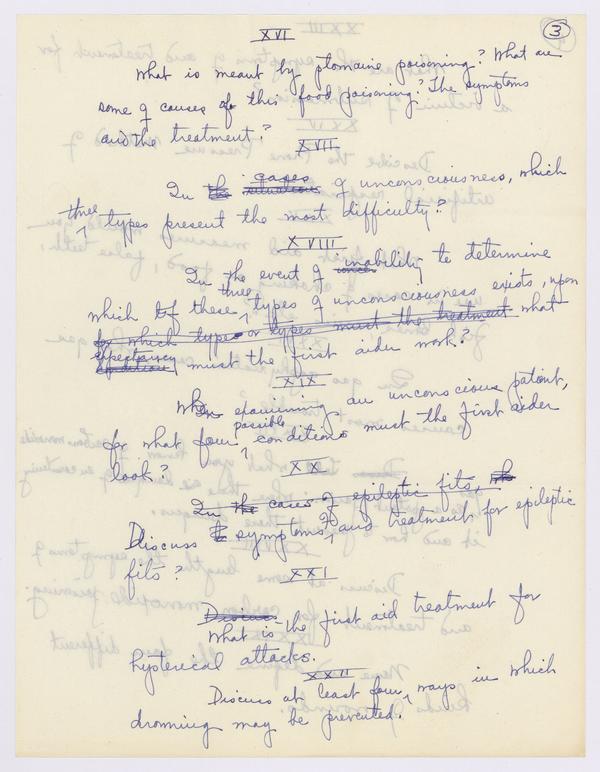 3
XVI
What is meant by ptomaine poisoning? What are
some of causes of this food poisoning? The symptoms
and the treatment?
XVII
In the situations cases of unconsciousness, which
three types present the most difficulty?
XVIII
In the event of inability to determine
which of these three types of unconsciousness exists, upon
for which types or types must the treatment what
expectancy must the first aider work?
XIX
When examining an unconscious patient,
for what four possible conditions must the first aider
look?
XX
In the cases of epileptic fits,
Discuss symptoms of and treatment for epileptic
fits?
XXI
Discuss
What is the first aid treatment for
hysterical attacks.
XXII
Discuss at least four ways in which
drowning may be prevented.